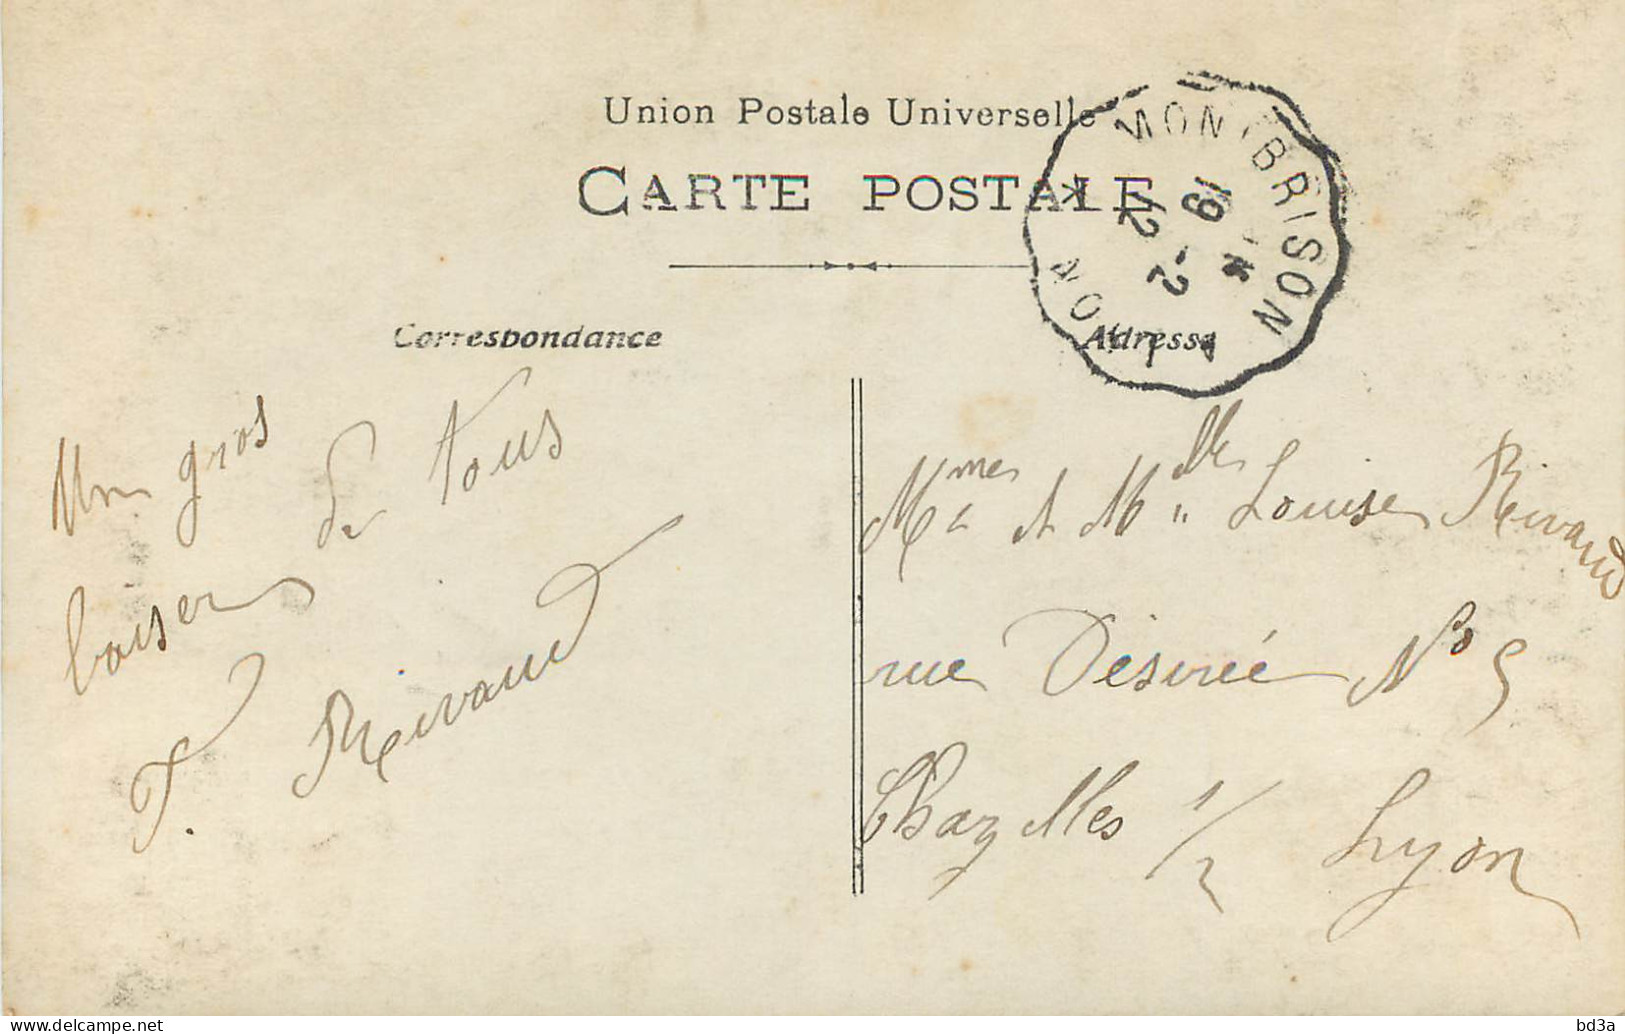 Union Postale Universelle
CARTE POSTALE
MONTBRISON
19
12 -2
LYON
Correspondance
Adresse
Un gros
baiser
de tous
F. Rivaud
Mmes et Mlle Louise Rivaud
rue Désirée No 5
Chazelles s/ Lyon
delcampe.net
bd3a